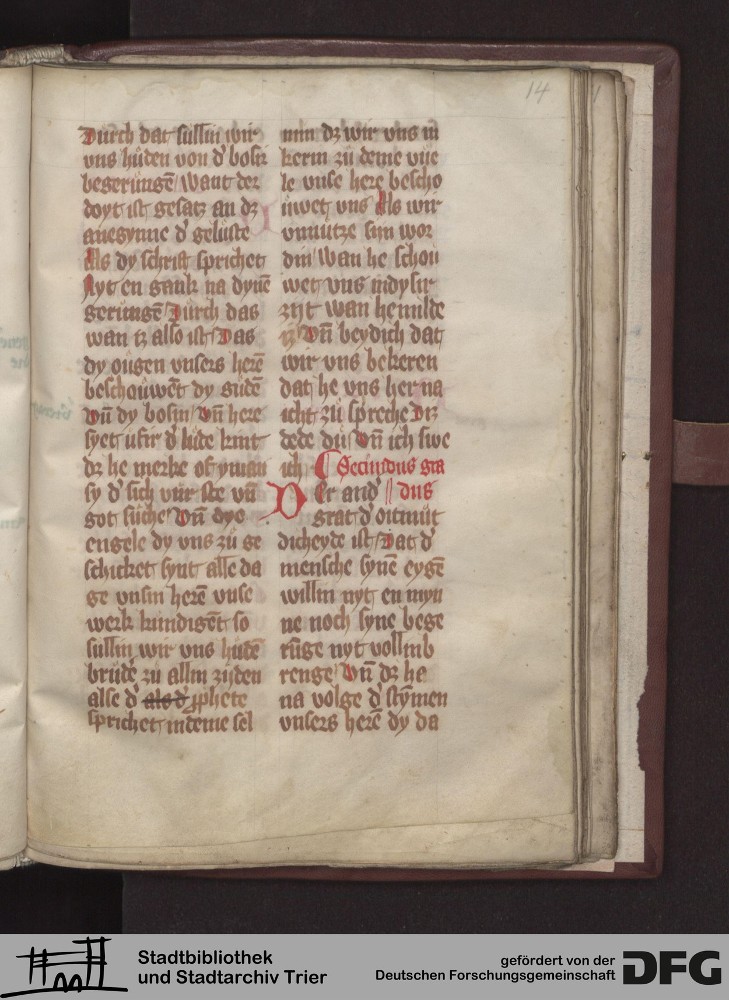 14
Durch dat sullin wir
vns hůden von d' bosir
begerungē / Want der
doyt ist gesatz an dz
anegynne d' geluste
Als dy schrift sprichet
Nyt en gank na dynē
gerungē / Durch das
wan iz also ist / Das
dy ougen vnsers herē
beschouwēt dy gudē
Vn̄ dy bosin / Vn̄ here
syet ufir d' lude kint
dz he merke of yman
sy d' sich vur ste vn̄
got suche / Vn̄ dye
engele dy vns zů ge
schicket synt alle da
ge vnsin herē vnse
werk kundigēt so
sullin wir vns hudē
brůde zů allin zijden
alse d' als d' pphete
sprichet in deme sel
min dz wir vns in
kerin zů deme vye
le vnse here bescho
uwet vns Als wir
vnnutze sijn wor
din / Wan he schou
wet vns in dysir
zijt wan he milde
iz Vn̄ beydich dat
wir vns bekeren
dat he vns her na
icht zů spreche Diz
dede du / Vn̄ ich swe
ich ¶ Secundus gra
Der and' // dus
grat d' oitmůt
dicheyde ist / Dat d'
mensche synē eygē
willin nyt en myn
ne noch syne bege
rūge nyt vollinb
renge / Vn̄ dz he
na volge d' stȳmen
vnsers herē dy da
Stadtbibliothek
und Stadtarchiv Trier
gefördert von der
Deutschen Forschungsgemeinschaft
DFG